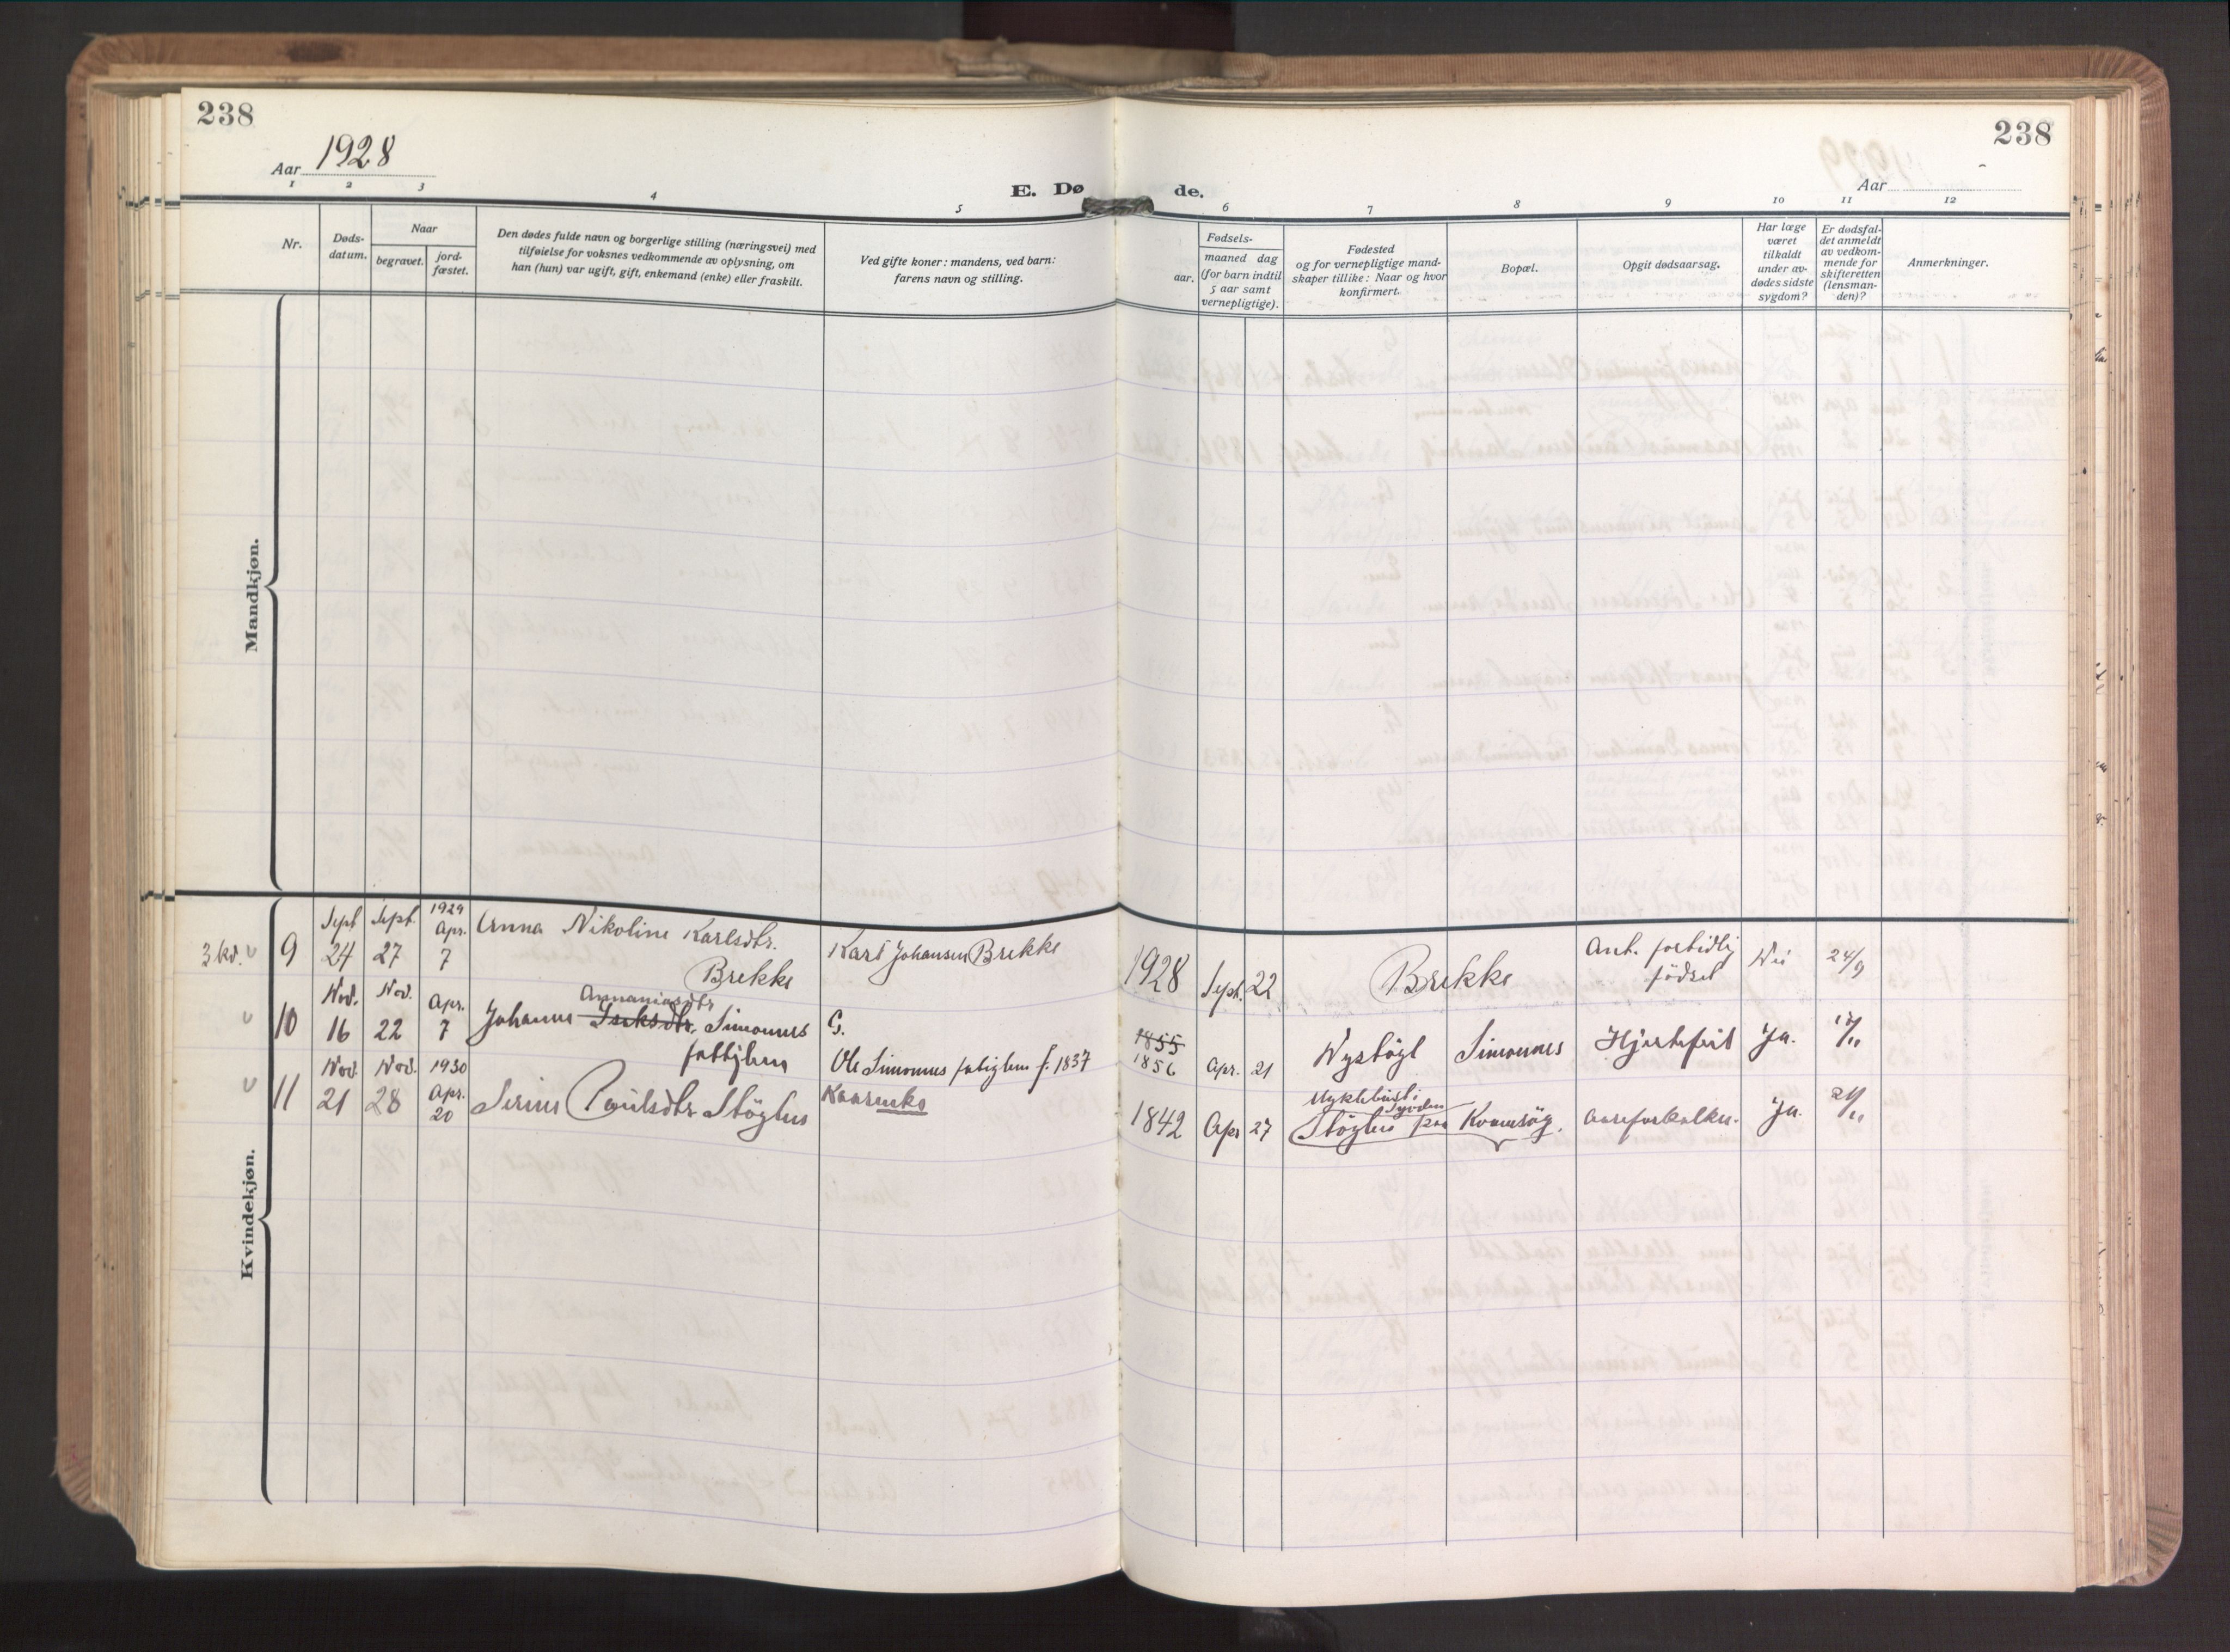 238
238
Aar 1928
Aar
E. Dø
de.
1 2 3 4 5 6 7 8 9 10 11 12
Nr.
Døds-
datum.
Naar
begravet.
jord-
fæstet.
Den dødes fulde navn og borgerlige stilling (næringsvei) med
tilføielse for voksnes vedkommende av oplysning, om
han (hun) var ugift, gift, enkemand (enke) eller fraskilt.
Ved gifte koner: mandens, ved barn:
farens navn og stilling.
Fødsels-
aar.
maaned dag
(for barn indtil
5 aar samt
vernepligtige).
Fødested
og for vernepligtige mand-
skaper tillike: Naar og hvor
konfirmert.
Bopæl.
Opgit dødsaarsag.
Har læge
været
tilkaldt
under av-
dødes sidste
sygdom?
Er dødsfal-
det anmeldt
av vedkom-
mende for
skifteretten
(lensman-
den)?
Anmerkninger.
Mandkjøn.
Kvindekjøn.
3 kd. 9 Sept 24 Sept. 27 1929 Apr. 7 Anna Nikoline Karlsdtr.
Brekke
Karl Johansen Brekke
1928 Sept. 22 Brekke
Ant. fortidlig
födsel
Nei 24/9
10 Nov. 16 Nov. 22 Apr. 7 Johanne Simonnes
Ananiasdtr
G.
Ole Simonnes f. 1837
1855
1856 Apr. 21 Simonnes Hjertefeil Ja.
11 Nov. 21 Nov. 28 1930 Apr. 20 Serine Paulsdtr Stöylen
Kaarenke
1842 Apr 27
Myklebust i
Syvden
Stöylen paa Kvamsöy. Aareforkalkn. Ja.